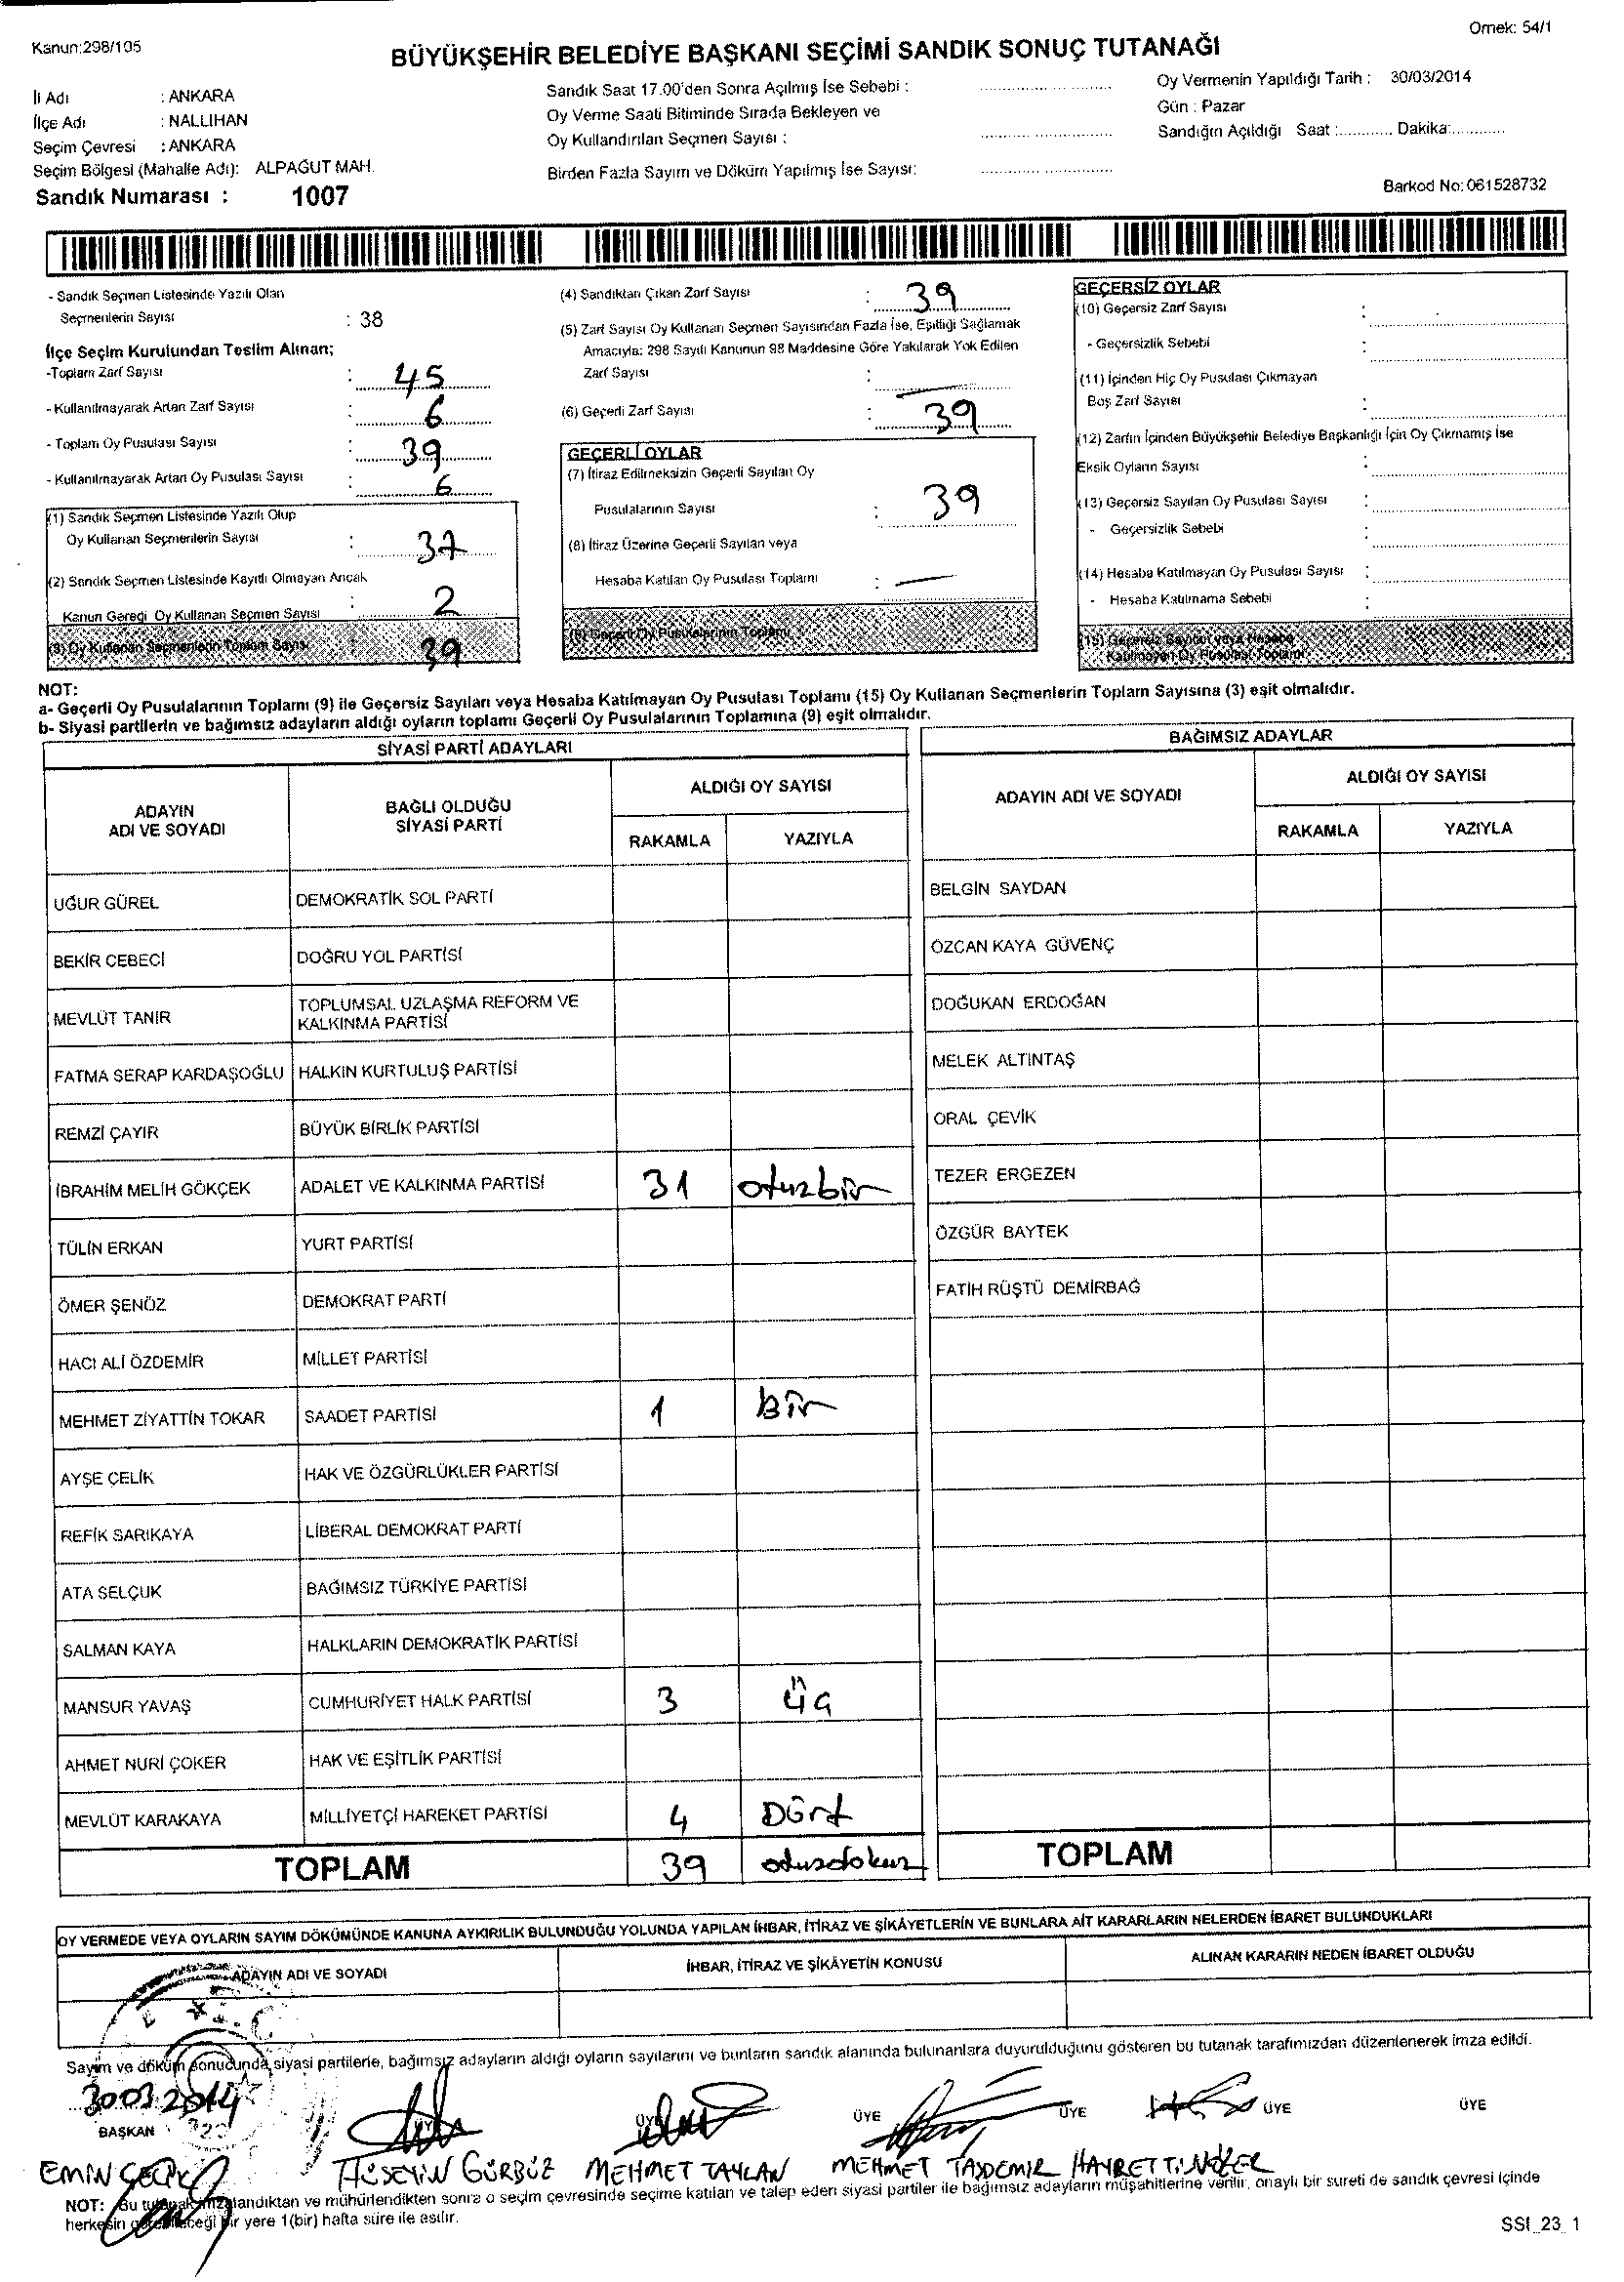 Kanun:298/105
Örnek: 54/1
BÜYÜKŞEHİR BELEDİYE BAŞKANI SEÇİMİ SANDIK SONUÇ TUTANAĞI
İli Adı : ANKARA
İlçe Adı : NALLIHAN
Seçim Çevresi : ANKARA
Seçim Bölgesi (Mahalle Adı): ALPAGUT MAH.
Sandık Numarası : 1007
Sandık Saat 17.00'den Sonra Açılmış İse Sebebi :
Oy Verme Saati Bitiminde Sırada Bekleyen ve
Oy Kullandırılan Seçmen Sayısı :
Birden Fazla Sayım ve Döküm Yapılmış İse Sayısı:
Oy Vermenin Yapıldığı Tarih : 30/03/2014
Gün : Pazar
Sandığın Açıldığı Saat :............ Dakika:............
Barkod No: 061528732
- Sandık Seçmen Listesinde Yazılı Olan
Seçmenlerin Sayısı : 38
İlçe Seçim Kurulundan Teslim Alınan;
-Toplam Zarf Sayısı : 45
- Kullanılmayarak Artan Zarf Sayısı : 6
- Toplam Oy Pusulası Sayısı : 39
- Kullanılmayarak Artan Oy Pusulası Sayısı : 6
(1) Sandık Seçmen Listesinde Yazılı Olup
Oy Kullanan Seçmenlerin Sayısı : 37
(2) Sandık Seçmen Listesinde Kayıtlı Olmayan Ancak
Kanun Gereği Oy Kullanan Seçmen Sayısı : 2
(3) Oy Kullanan Seçmenlerin Toplam Sayısı : 39
(4) Sandıktan Çıkan Zarf Sayısı : 39
(5) Zarf Sayısı Oy Kullanan Seçmen Sayısından Fazla İse, Eşitliği Sağlamak
Amacıyla: 298 Sayılı Kanunun 98 Maddesine Göre Yakılarak Yok Edilen
Zarf Sayısı : —
(6) Geçerli Zarf Sayısı : 39
GEÇERLİ OYLAR
(7) İtiraz Edilmeksizin Geçerli Sayılan Oy
Pusulalarının Sayısı : 39
(8) İtiraz Üzerine Geçerli Sayılan veya
Hesaba Katılan Oy Pusulası Toplamı : —
(9) Geçerli Oy Pusulalarının Toplamı
GEÇERSİZ OYLAR
(10) Geçersiz Zarf Sayısı :
- Geçersizlik Sebebi :
(11) İçinden Hiç Oy Pusulası Çıkmayan
Boş Zarf Sayısı :
(12) Zarfın İçinden Büyükşehir Belediye Başkanlığı İçin Oy Çıkmamış İse
Eksik Oyların Sayısı :
(13) Geçersiz Sayılan Oy Pusulası Sayısı :
- Geçersizlik Sebebi :
(14) Hesaba Katılmayan Oy Pusulası Sayısı :
- Hesaba Katılmama Sebebi :
(15) Geçersiz Sayılan veya Hesaba
Katılmayan Oy Pusulası Toplamı
NOT:
a- Geçerli Oy Pusulalarının Toplamı (9) ile Geçersiz Sayılan veya Hesaba Katılmayan Oy Pusulası Toplamı (15) Oy Kullanan Seçmenlerin Toplam Sayısına (3) eşit olmalıdır.
b- Siyasi partilerin ve bağımsız adayların aldığı oyların toplamı Geçerli Oy Pusulalarının Toplamına (9) eşit olmalıdır.
SİYASİ PARTİ ADAYLARI
ADAYIN ADI VE SOYADI
BAĞLI OLDUĞU SİYASİ PARTİ
ALDIĞI OY SAYISI
RAKAMLA YAZIYLA
UĞUR GÜREL DEMOKRATİK SOL PARTİ
BEKİR CEBECİ DOĞRU YOL PARTİSİ
MEVLÜT TANIR TOPLUMSAL UZLAŞMA REFORM VE KALKINMA PARTİSİ
FATMA SERAP KARDAŞOĞLU HALKIN KURTULUŞ PARTİSİ
REMZİ ÇAYIR BÜYÜK BİRLİK PARTİSİ
İBRAHİM MELİH GÖKÇEK ADALET VE KALKINMA PARTİSİ 31 otuzbir
TÜLİN ERKAN YURT PARTİSİ
ÖMER ŞENÖZ DEMOKRAT PARTİ
HACI ALİ ÖZDEMİR MİLLET PARTİSİ
MEHMET ZİYATTİN TOKAR SAADET PARTİSİ 1 bir
AYŞE ÇELİK HAK VE ÖZGÜRLÜKLER PARTİSİ
REFİK SARIKAYA LİBERAL DEMOKRAT PARTİ
ATA SELÇUK BAĞIMSIZ TÜRKİYE PARTİSİ
SALMAN KAYA HALKLARIN DEMOKRATİK PARTİSİ
MANSUR YAVAŞ CUMHURİYET HALK PARTİSİ 3 üç
AHMET NURİ ÇOKER HAK VE EŞİTLİK PARTİSİ
MEVLÜT KARAKAYA MİLLİYETÇİ HAREKET PARTİSİ 4 Dört
TOPLAM 39 otuzdokuz
BAĞIMSIZ ADAYLAR
ADAYIN ADI VE SOYADI
ALDIĞI OY SAYISI
RAKAMLA YAZIYLA
BELGİN SAYDAN
ÖZCAN KAYA GÜVENÇ
DOĞUKAN ERDOĞAN
MELEK ALTINTAŞ
ORAL ÇEVİK
TEZER ERGEZEN
ÖZGÜR BAYTEK
FATİH RÜŞTÜ DEMİRBAĞ
TOPLAM
OY VERMEDE VEYA OYLARIN SAYIM DÖKÜMÜNDE KANUNA AYKIRILIK BULUNDUĞU YOLUNDA YAPILAN İHBAR, İTİRAZ VE ŞİKÂYETLERİN VE BUNLARA AİT KARARLARIN NELERDEN İBARET BULUNDUKLARI
ADAYIN ADI VE SOYADI
İHBAR, İTİRAZ VE ŞİKÂYETİN KONUSU
ALINAN KARARIN NEDEN İBARET OLDUĞU
Sayım ve döküm sonucunda siyasi partilerle, bağımsız adayların aldığı oyların sayılarını ve bunların sandık alanında bulunanlara duyurulduğunu gösteren bu tutanak tarafımızdan düzenlenerek imza edildi.
30 03 2014
BAŞKAN ÜYE ÜYE ÜYE ÜYE ÜYE ÜYE
EMİN HÜSEYİN GÜRBÜZ MEHMET TAYLAN MEHMET TAŞDEMİR HAYRETTİN
NOT: Bu tutanak imzalandıktan ve mühürlendikten sonra o seçim çevresinde seçime katılan ve talep eden siyasi partiler ile bağımsız adayların müşahitlerine verilir, onaylı bir sureti de sandık çevresi içinde
herkesin görebileceği bir yere 1(bir) hafta süre ile asılır.
SSI_23_1